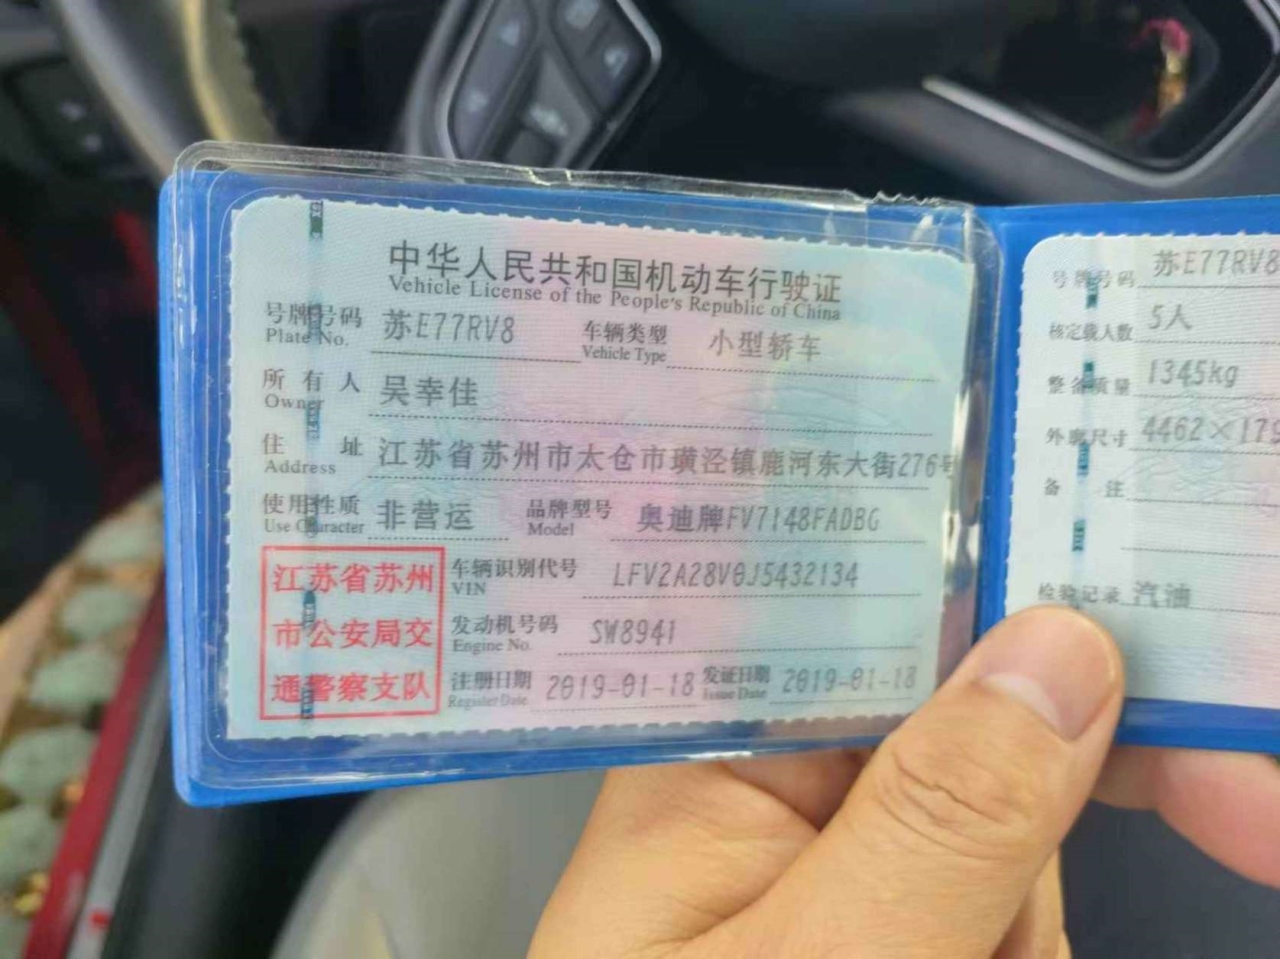 中华人民共和国机动车行驶证
Vehicle License of the People's Republic of China
号牌号码 苏E77RV8 车辆类型 小型轿车
Plate No. Vehicle Type
所有人 吴幸佳
Owner
住址 江苏省苏州市太仓市璜泾镇鹿河东大街276号
Address
使用性质 非营运 品牌型号 奥迪牌FV7148FADBG
Use Character Model
江苏省苏州
市公安局交
通警察支队
车辆识别代号 LFV2A28V0J5432134
VIN
发动机号码 SW8941
Engine No.
注册日期 2019-01-18 发证日期 2019-01-18
Register Date Issue Date
号牌号码 苏E77RV8
核定载人数 5人
整备质量 1345kg
外廓尺寸 4462×179
备注
检验记录 汽油